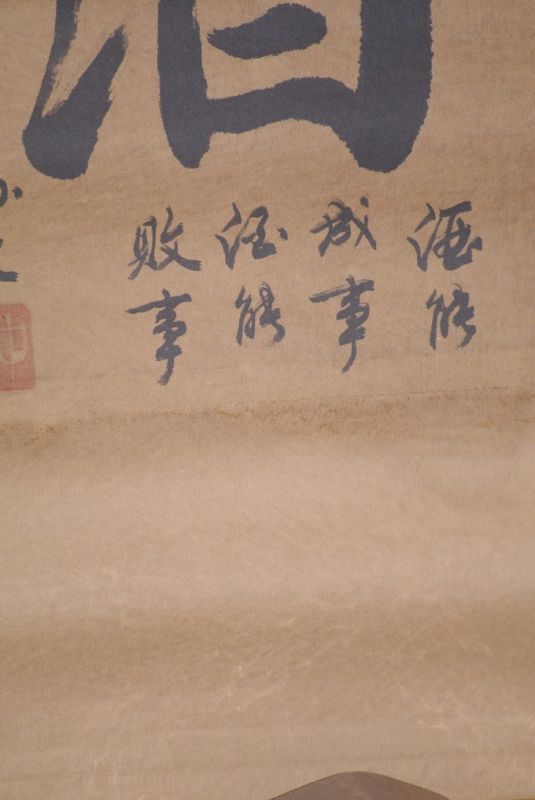 酒能
成事
酒能
敗事